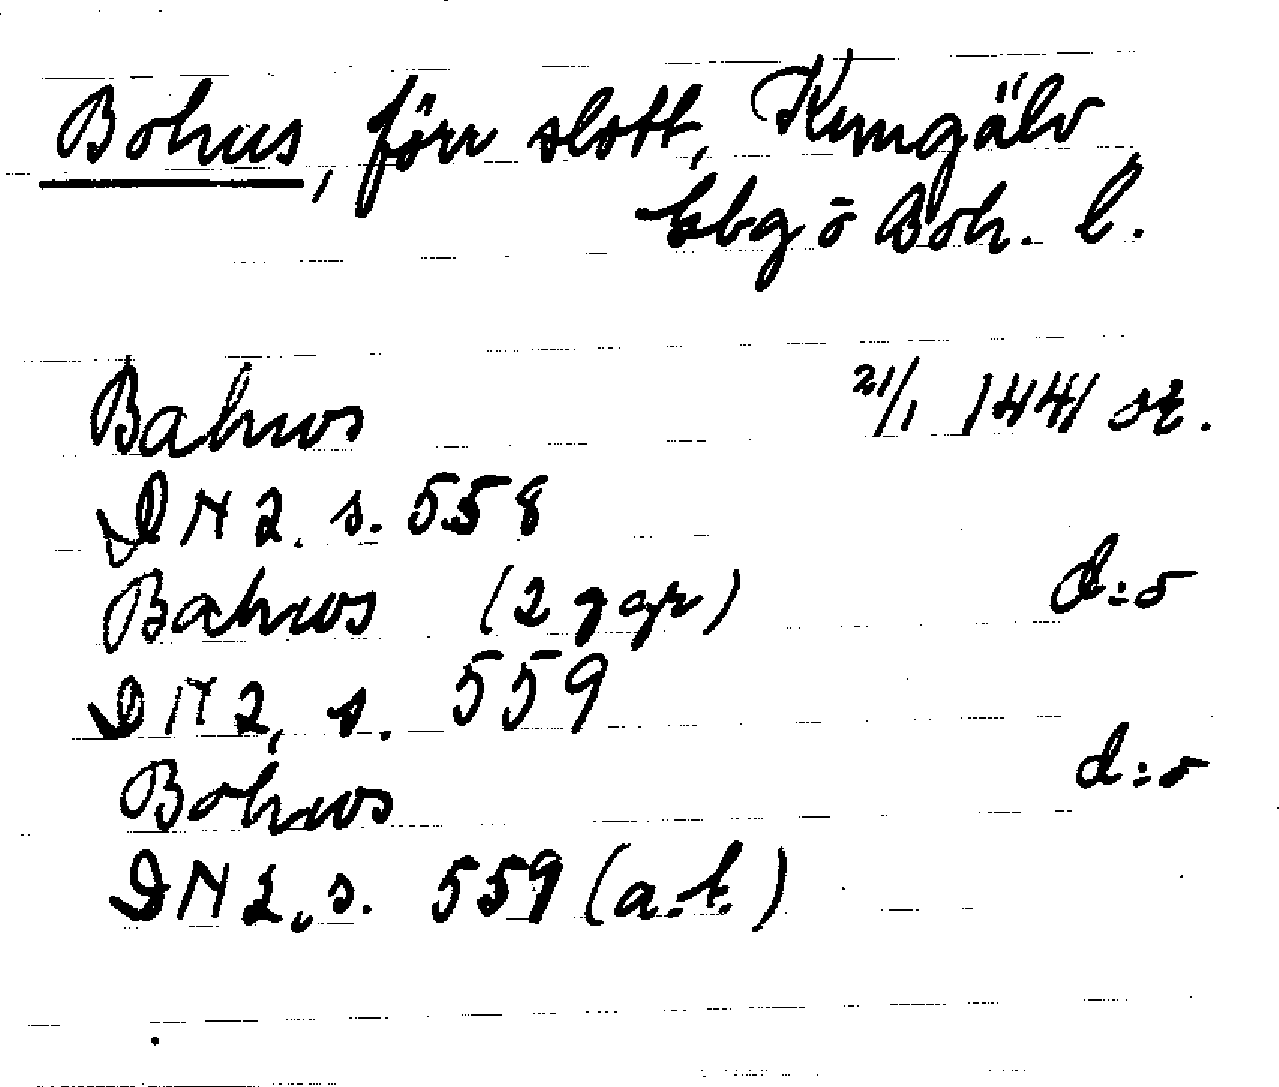 Bohus, förr slott, Kungälv
Gbg o Boh. l.
Bahws 21/1 1441 or.
DN 2. s. 558
Bahws (2 ggr) d:o
DN 2, s. 559
Bohws d:o
DN 2, s. 559 (a.t.)